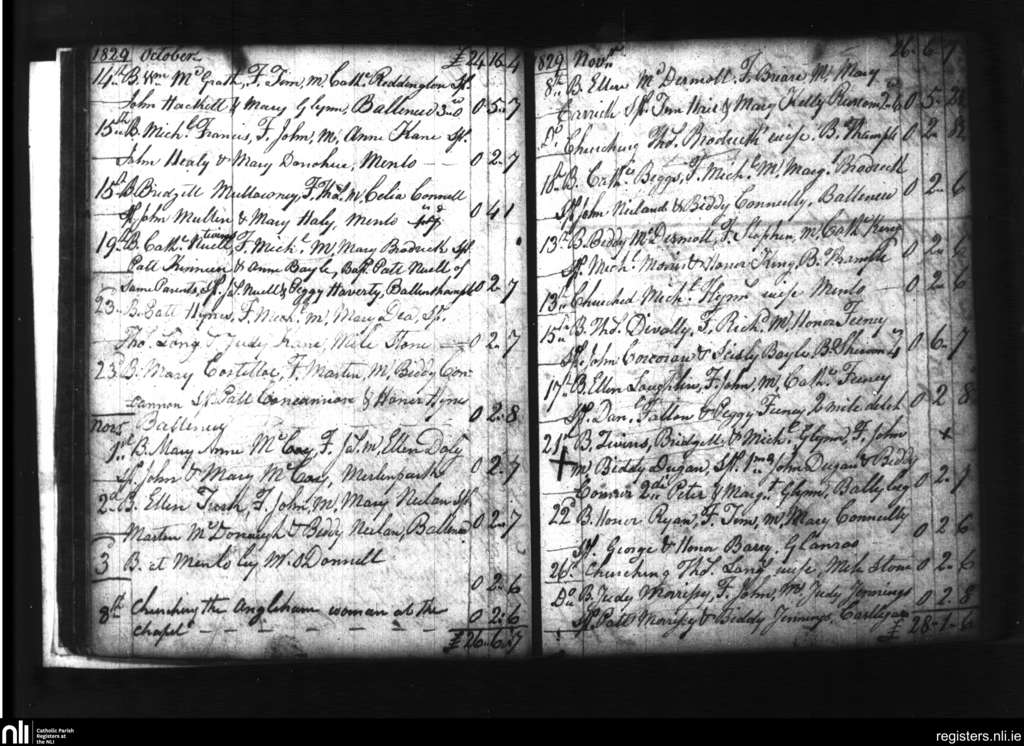 1829 October £24 16 4
14th B. Wm McGrath, F. Tim, M. Cathe Reddington Sp.
John Hackett & Mary Glynn, Ballenew 0 5 7
15th B. Michl Francis, F. John, M, Anne Kane Sp.
John Healy & Mary Donohue, Menlo 0 2 7
15th B. Bridgett Mullowney, F. Thos. M. Celia Connell
Sp. John Mullin & Mary Haly, Menlo 0 4 1
19th B. Cathe Nuell, F. Michl M, Mary Brodrick Sp.
Patt Kinneen & Anne Boyle, Bapt. Patt Nuell of
Same Parents, Sp. Js. Nuell & Peggy Haverty, 0 2 7
23 B. Patt Hynes, F. Michl M, Mary Dea, Sp.
Tho. Long & Judy Kane, Mile Stone 0 2 7
23d B. Mary Costelloe, F. Martin, M, Biddy Con-
cannon Sp. Patt Concannon & Honor Hynes 0 2 8
Novr Ballenew
1st B. Mary Anne McCoy, F. Js. M, Ellen Daly
Sp. John & Mary McCoy, Merlinpark 0 2 7
2d B. Ellen Trosh, F. John, M, Mary Neilan Sp.
Martin McDonough & Biddy Neilan, Ballenew 0 2 7
3 B. at Menlo by Mr. O'Donnell
0 2 6
8th Churching the Angliham woman at the
chapel 0 2 6
£26 6 7
1829 Novr 26 6 7
8th B. Ellen McDermott. F. Briare M. Mary
Sp. Tim & Mary Kelly 0 5
Do Churching Thos. Brodrick wife 0 2
10th B. Cathe Beggs, F. Michl M, Margt Brodrick
Sp. John Neiland & Biddy Connelly, Ballenew 0 2 6
13th B. Biddy McDermott, F. Stephen, M, Cathe King
Sp. Michl Morris & Honor King, 0 2 6
13th Churched Michl Flynn wife Menlo 0 2 6
15th B. Thos. Divally, F. Richd M, Honor Feeney
Sp. John Corcoran & Sicily Boyle, 0 6 7
17th B. Ellen Loughlin, F. John, M, Cathe Feeney
Sp. Danl Fallon & Peggy Feeney, 2 mile ditch 0 2 8
21st B. Twins, Bridgett & Michl Glynn, F. John
M Biddy Dugan, Sp. 1mo John Dugan & Biddy
Connor 2do Peter & Margt Glynn, Ballybeg 0 2 7
22d B. Honor Ryan, F. Tim, M, Mary Connelly
Sp. George & Honor Barry, Glanras 0 2 6
26th Churching Thos. Longs wife, Mile Stone 0 2 6
Do B. Judy Morrissy, F. John, M. Judy Jennings
Sp. Patt Morrissy & Biddy Jennings, Castlegar 0 2 8
£28 1 6
nli
Catholic Parish
Registers at
the NLI
registers.nli.ie